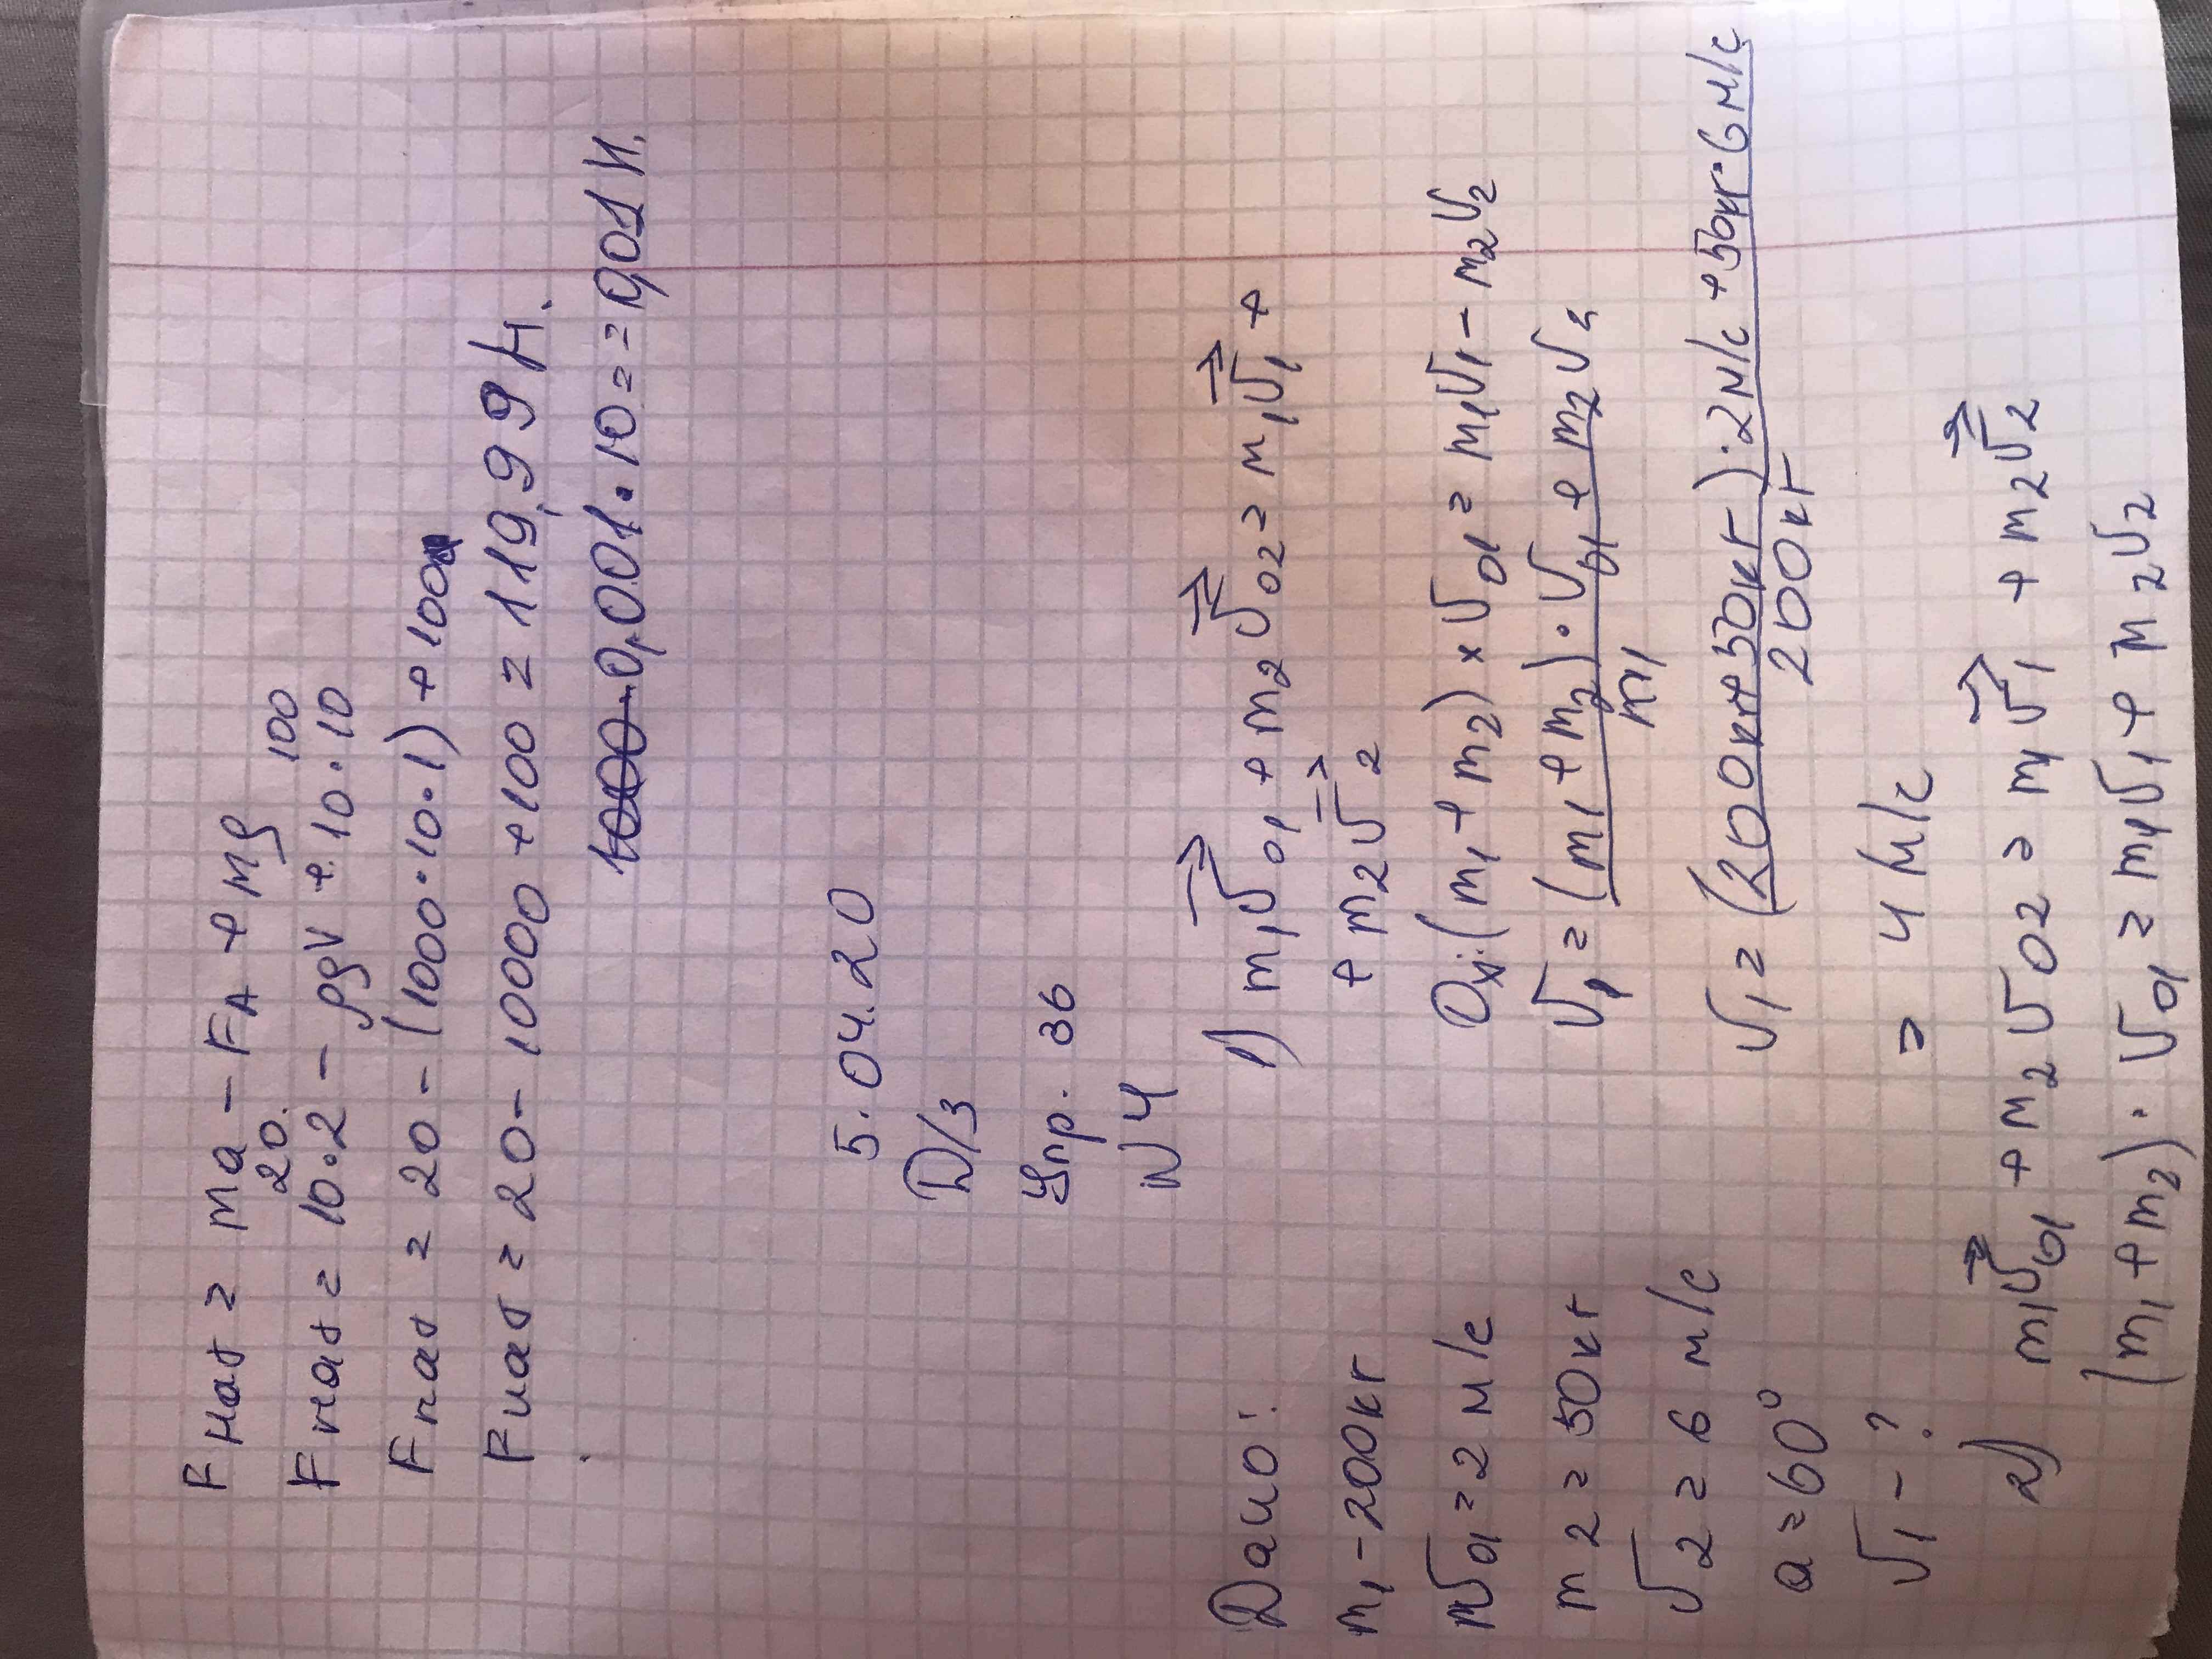 Fнат = ma - FA + mg
20. 100
Fнат = 10·2 - ρgV + 10·10
Fнат = 20 - (1000·10·1) + 100
Fнат = 20 - 10000 + 100 = 119,99 Н.
0,001·10 = = 0,01 Н.
5.04.20
Д/З
Упр. 36
N 4
Дано:
m1 - 200кг
v01 = 2 м/с
m2 = 50кг
v2 = 6 м/с
a = 60°
v1 - ?
1) m1v01 + m2v02 = m1v1 +
+ m2v2
Ox: (m1 + m2) × v01 = m1v1 - m2v2
v1 = (m1 + m2) · v01 + m2v2
m1
v1 = (200кг+50кг)·2м/с + 50кг·6м/с
200кг
= 4 м/с
2) m1v01 + m2v02 = m1v1 + m2v2
(m1 + m2) · v01 = m1v1 + m2v2